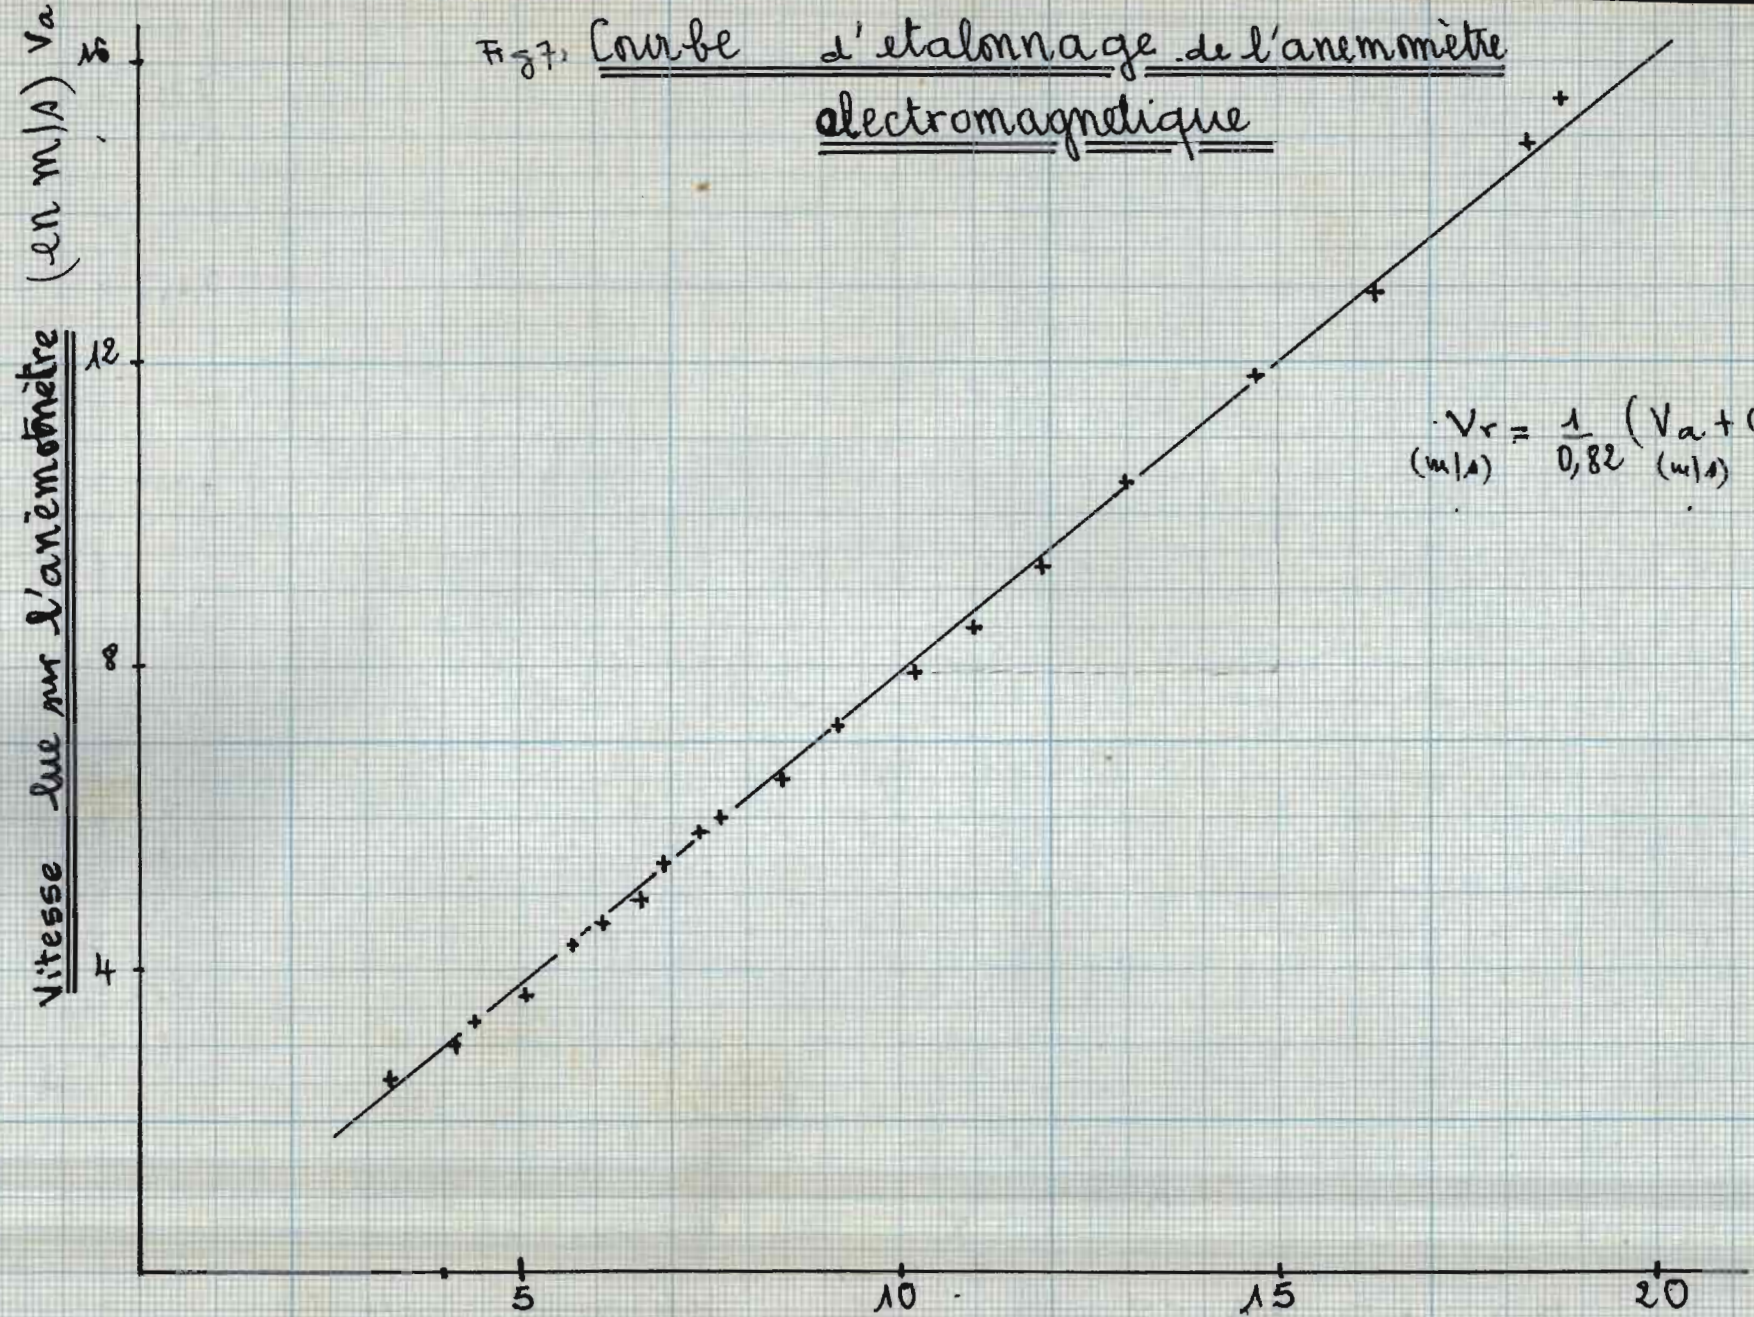 Fig 7. Courbe d'etalonnage de l'anemomètre
electromagnetique
Vitesse lue sur l'anémomètre (en m/s) Va
16
12
8
4
Vr = 1/0,82 (Va +
(m/s) (m/s)
5 10 15 20